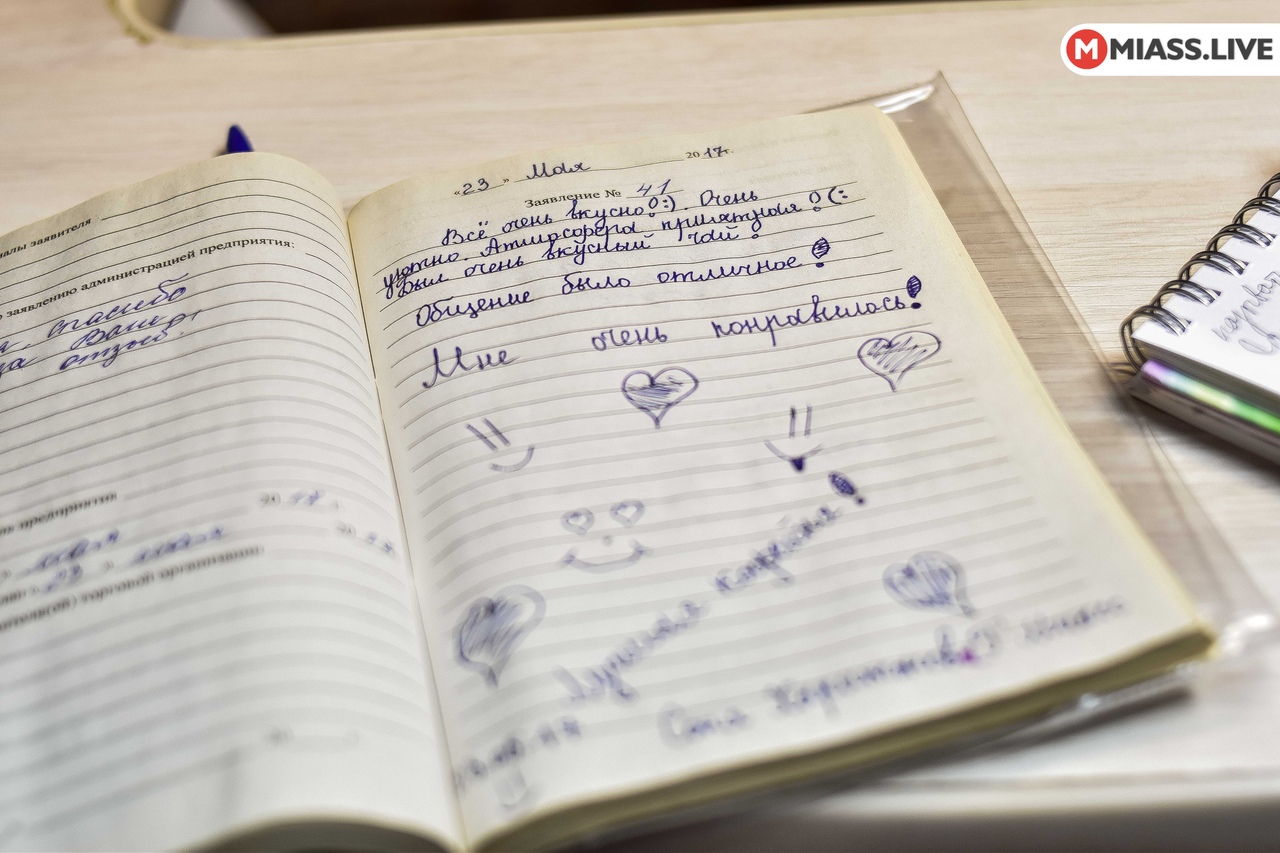 MMIASS.LIVE
алы заявителя
заявлению администрацией предприятия:
спасибо
за Ваш
отзыв!
предприятия
20 17 г.
мая
23 мая
торговой организации:
"23" Мая 2017г.
Заявление № 41
Всё очень вкусно!:). Очень
уютно. Атмосфера приятная!(:
Был очень вкусный чай!
Общение было отличное!
Мне очень понравилось!
Лучшая кафешка!